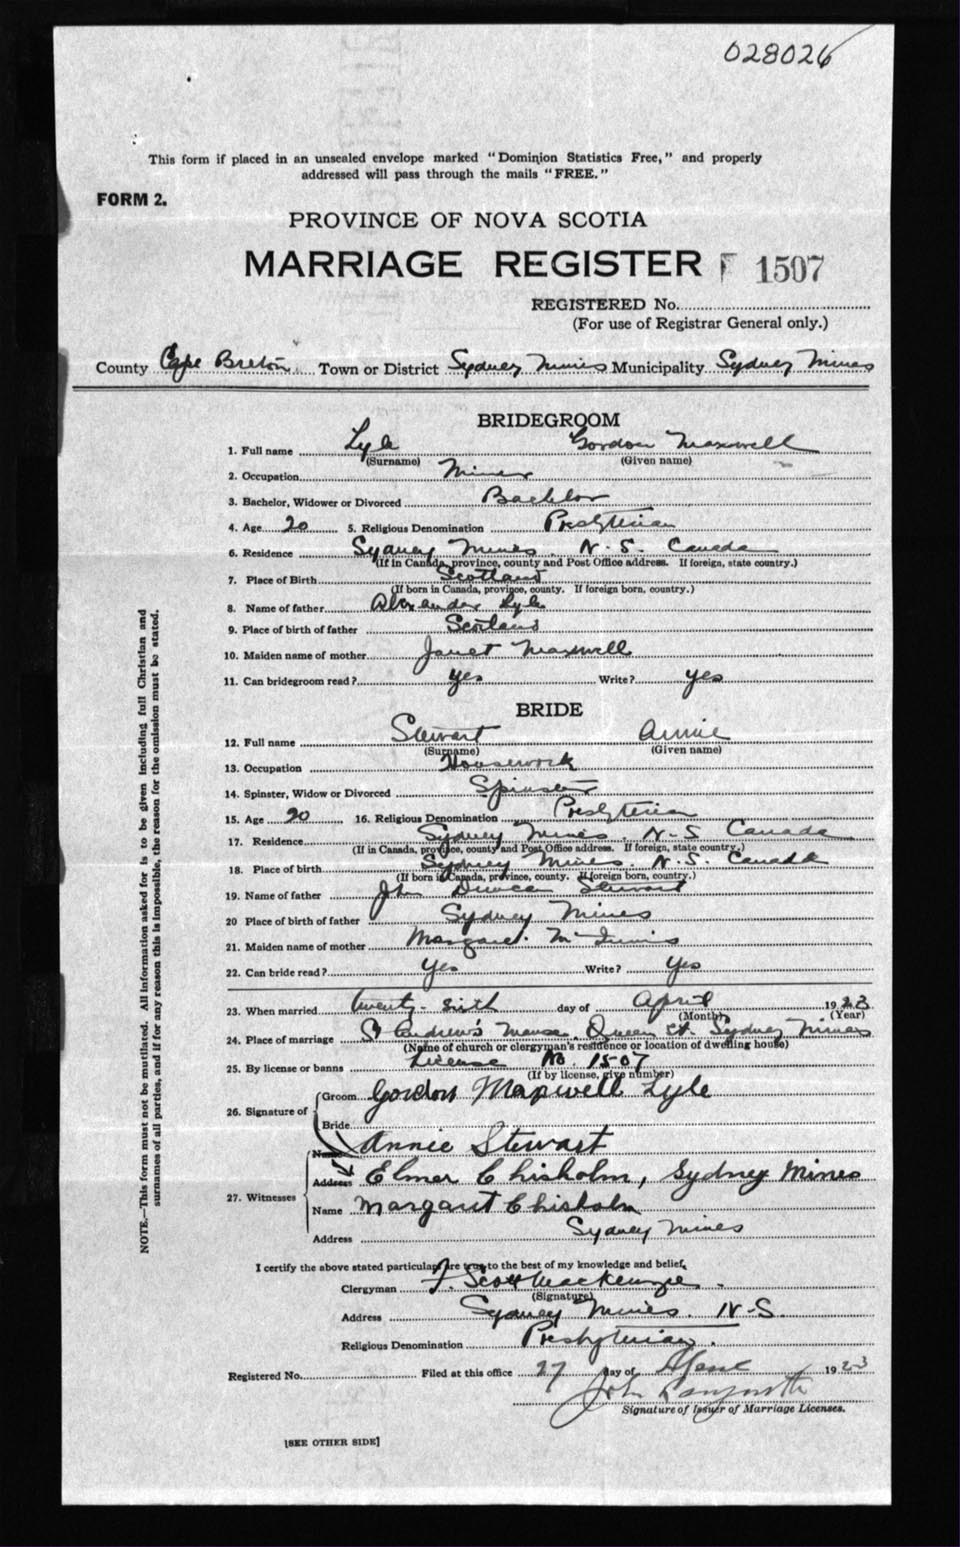 028026
This form if placed in an unsealed envelope marked "Dominion Statistics Free," and properly
addressed will pass through the mails "FREE."
FORM 2.
PROVINCE OF NOVA SCOTIA
MARRIAGE REGISTER F 1507
REGISTERED No.
(For use of Registrar General only.)
County Cape Breton Town or District Sydney Mines Municipality Sydney Mines
BRIDEGROOM
1. Full name Lyle Gordon Maxwell
(Surname) (Given name)
2. Occupation Miner
3. Bachelor, Widower or Divorced Bachelor
4. Age 20 5. Religious Denomination Presbyterian
6. Residence Sydney Mines. N.S. Canada
(If in Canada, province, county and Post Office address. If foreign, state country.)
7. Place of Birth Scotland
(If born in Canada, province, county. If foreign born, country.)
8. Name of father Alexander Lyle
9. Place of birth of father Scotland
10. Maiden name of mother Janet Maxwell
11. Can bridegroom read? Yes Write? Yes
BRIDE
12. Full name Stewart Annie
(Surname) (Given name)
13. Occupation Housework
14. Spinster, Widow or Divorced Spinster
15. Age 20 16. Religious Denomination Presbyterian
17. Residence Sydney Mines. N-S Canada
(If in Canada, province, county and Post Office address. If foreign, state country.)
18. Place of birth Sydney Mines. N.S. Canada
(If born in Canada, province, county. If foreign born, country.)
19. Name of father John Duncan Stewart
20 Place of birth of father Sydney Mines
21. Maiden name of mother Margaret McInnis
22. Can bride read? Yes Write? Yes
23. When married twenty-sixth day of April 1923
(Month) (Year)
24. Place of marriage St Andrew's Manse, Queen St. Sydney Mines
(Name of church or clergyman's residence or location of dwelling house)
25. By license or banns License No 1507
(If by license, give number)
26. Signature of Groom Gordon Maxwell Lyle
Bride Annie Stewart
27. Witnesses Name
Address Elmer Chisholm, Sydney Mines
Name Margaret Chisholm
Address Sydney Mines
I certify the above stated particulars are true to the best of my knowledge and belief.
Clergyman F. Scott Mackenzie.
(Signature)
Address Sydney Mines. N-S.
Religious Denomination Presbyterian.
Registered No. Filed at this office 27 day of April 1923
John
Signature of Issuer of Marriage Licenses.
[SEE OTHER SIDE]
NOTE.—This form must not be mutilated. All information asked for is to be given including full Christian and
surnames of all parties, and if for any reason this is impossible, the reason for the omission must be stated.